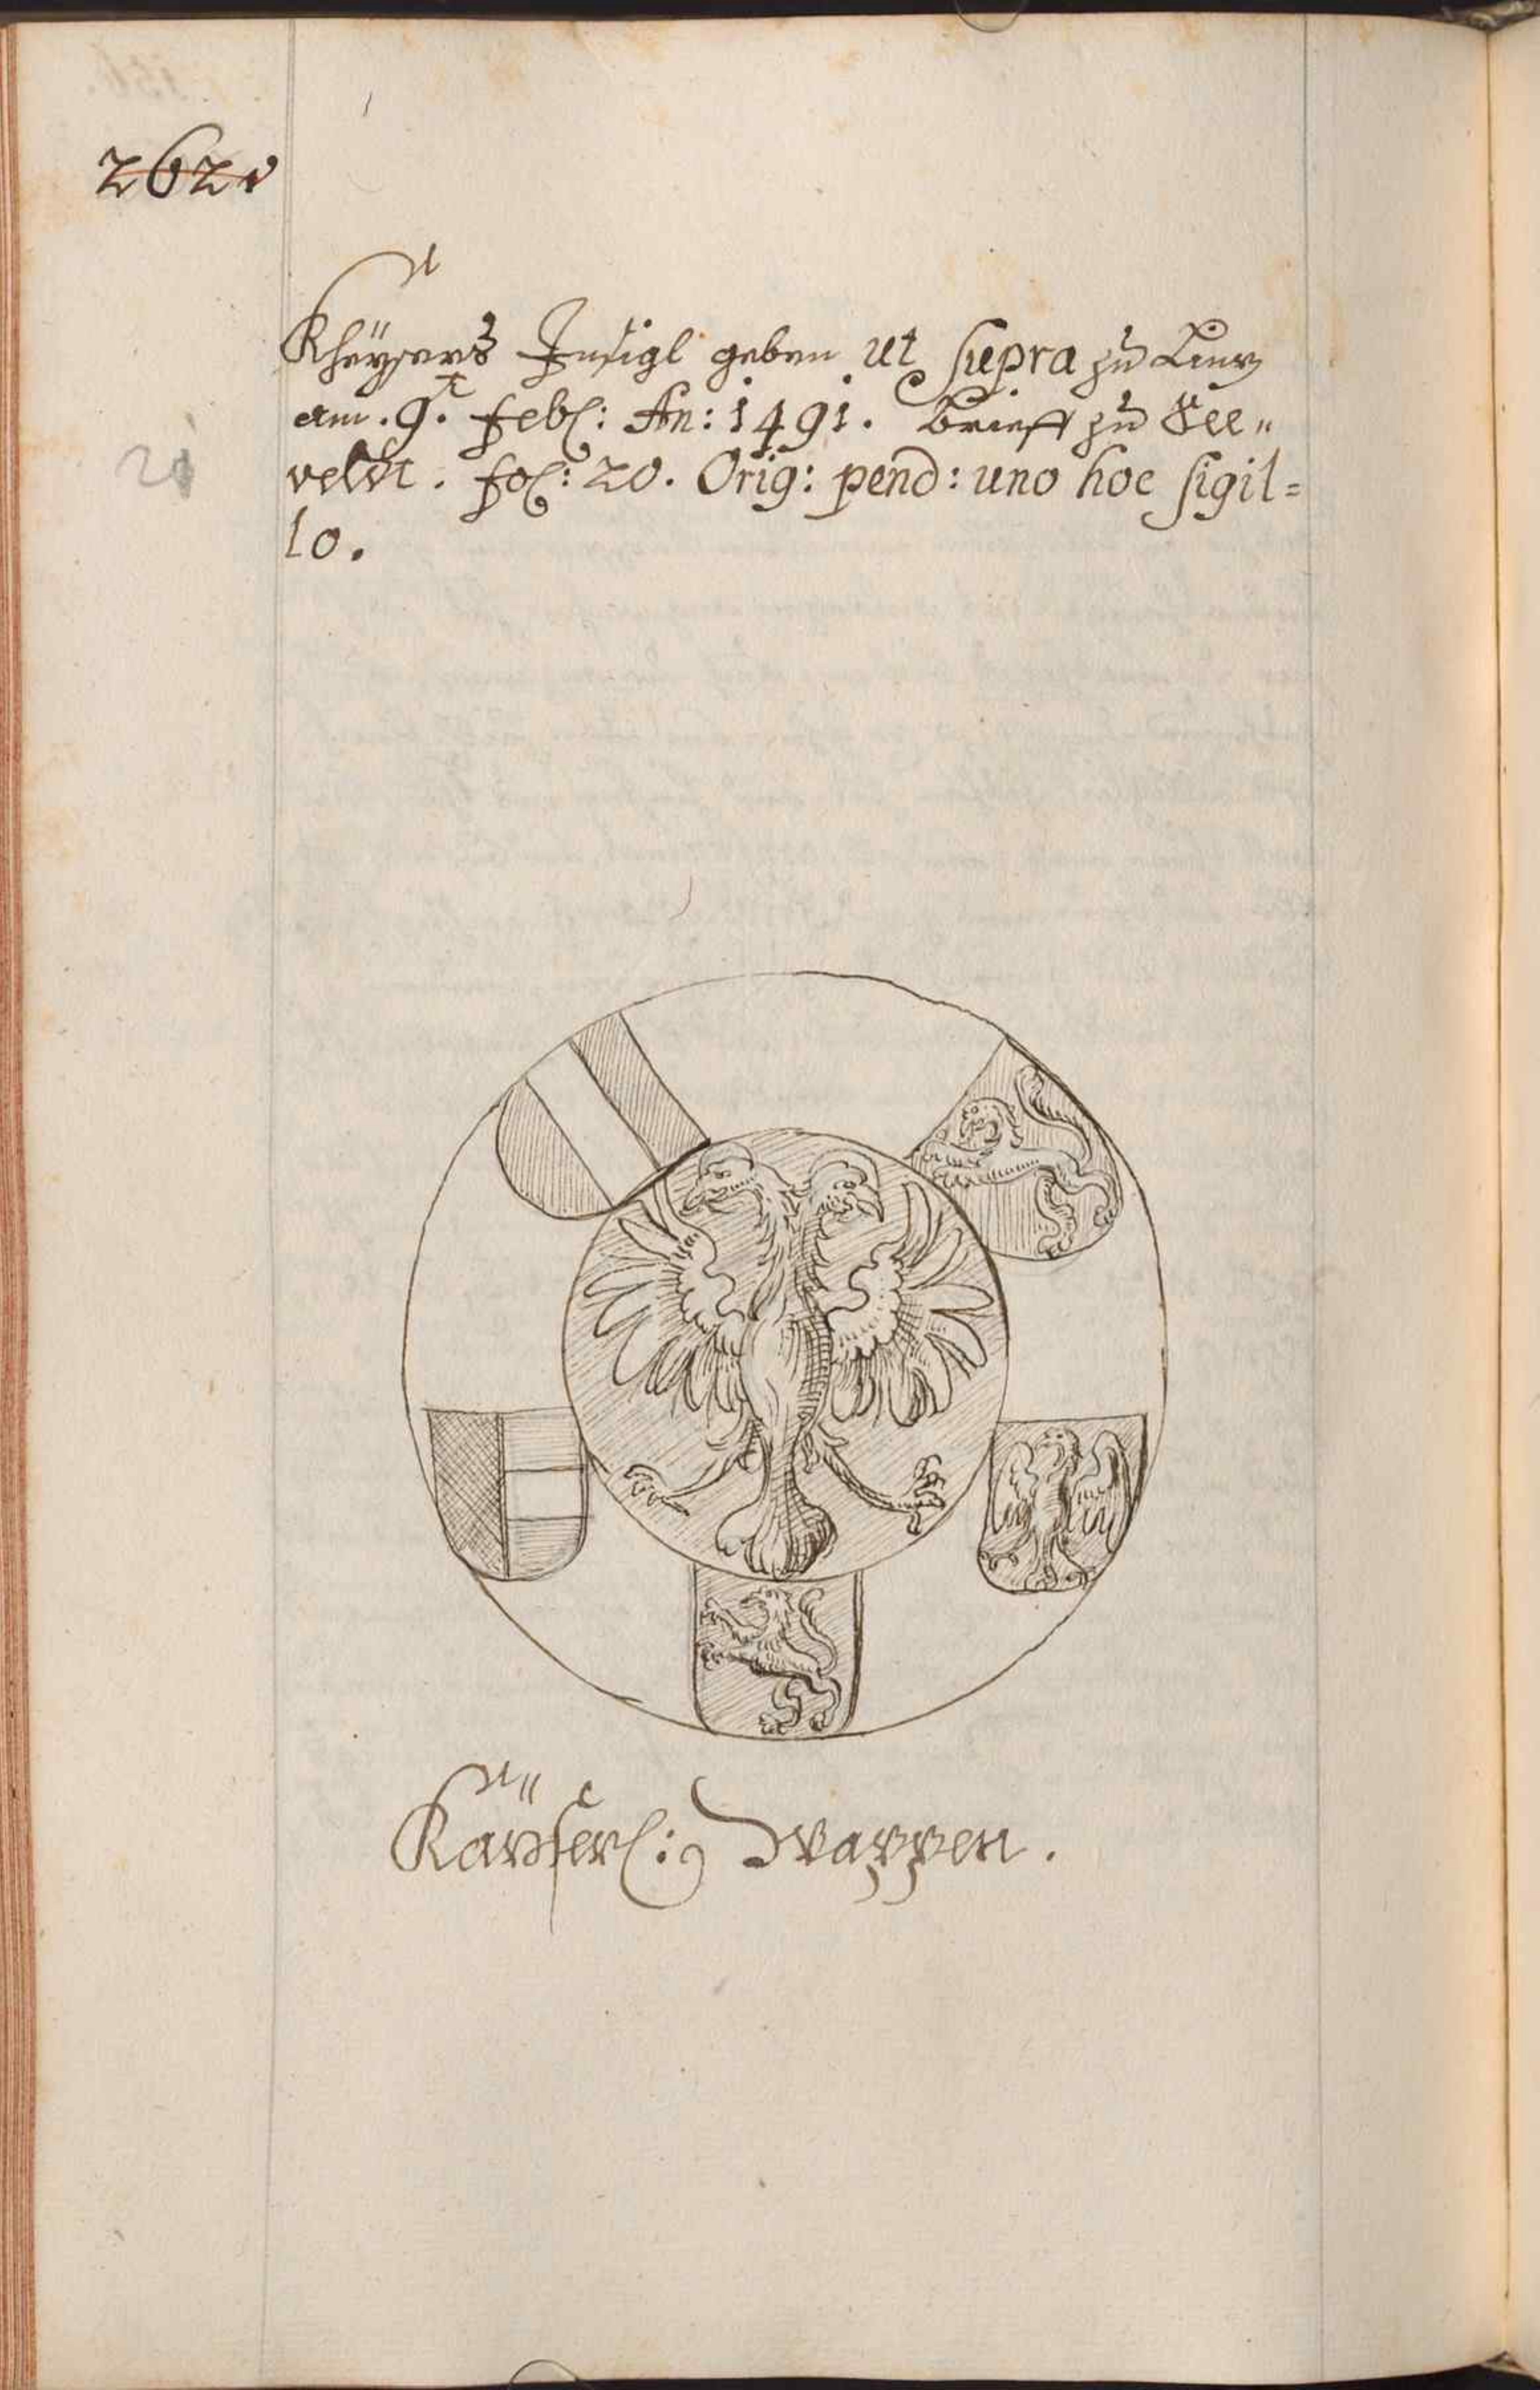 262v
Kheÿsers Insigl geben ut supra zu Lintz
am . 9.t Feb: An: 1491. Brieff zu See„
veldt . fol: 20. Orig: pend: uno hoc sigil=
lo.
Kaÿserl: Wappen .